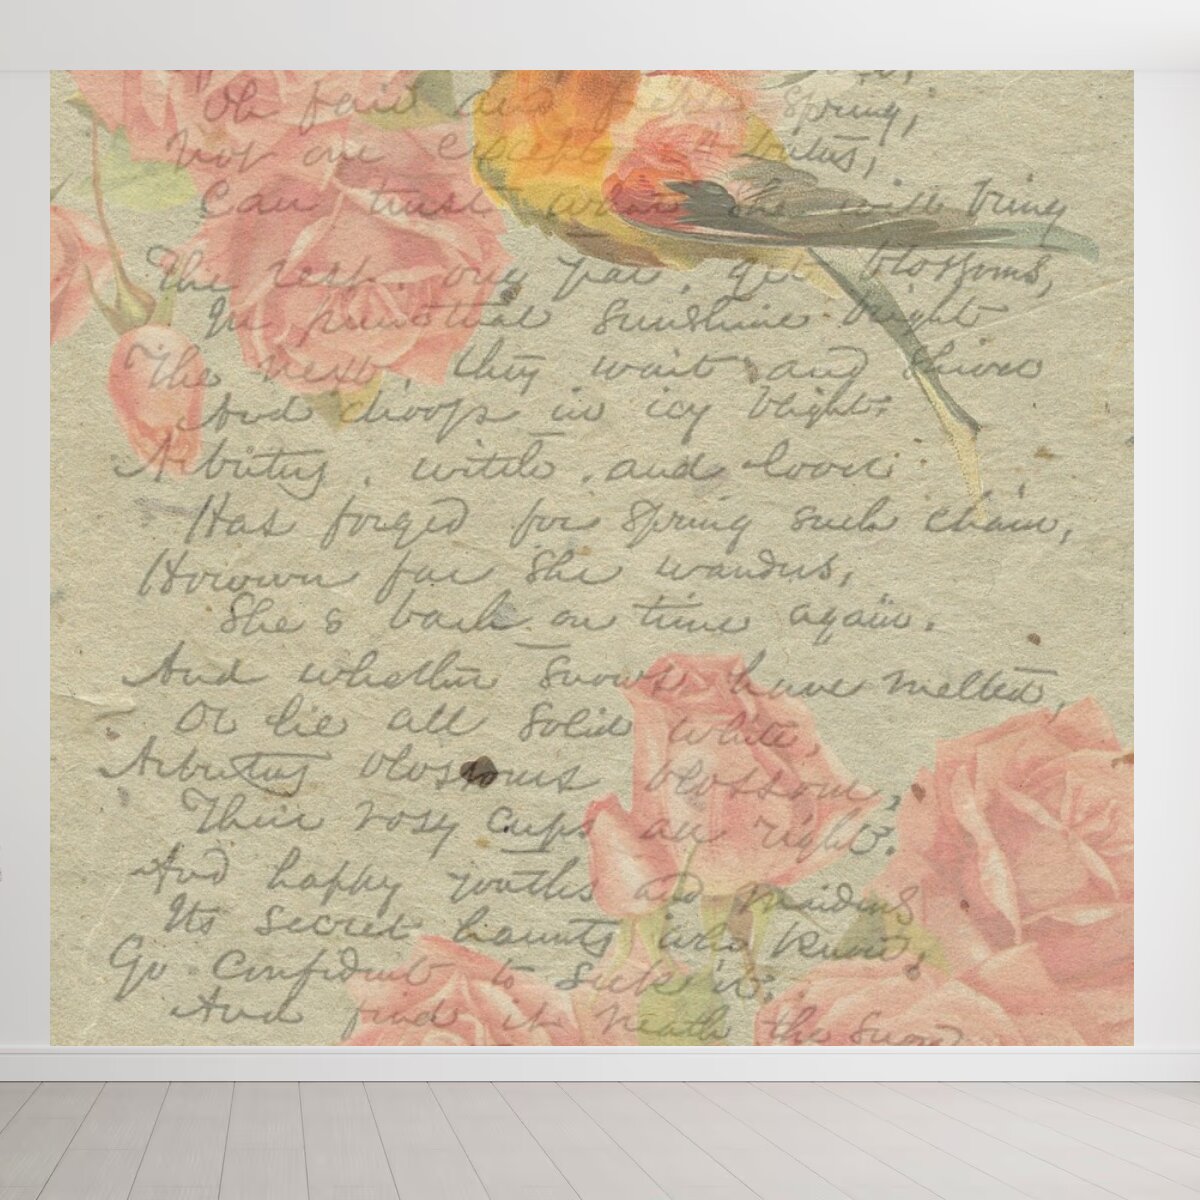 Oh fair and fickle Spring,
Not one except Arbutus,
Can trust what she will bring
The rest, one year, get blossoms,
In punctual sunshine bright
The next, they wait and shiver
And droop in icy blight.
Arbutus, witch, and lover
Has forged for Spring such chain,
However far she wanders,
She's back on time again.
And whether snows have melted,
Or lie all solid white,
Arbutus blossoms blossom,
Their rosy cups all right.
And happy youths and maidens
Its secret haunts who know,
Go confident to seek it,
And find it neath the snow